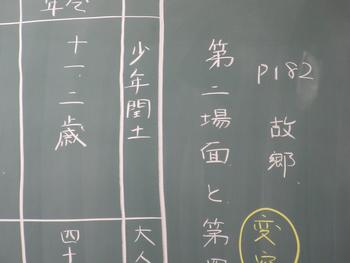 P182 故郷
第二場面と第四
変
少年閏土
大人
年令
十一、二歳
四十